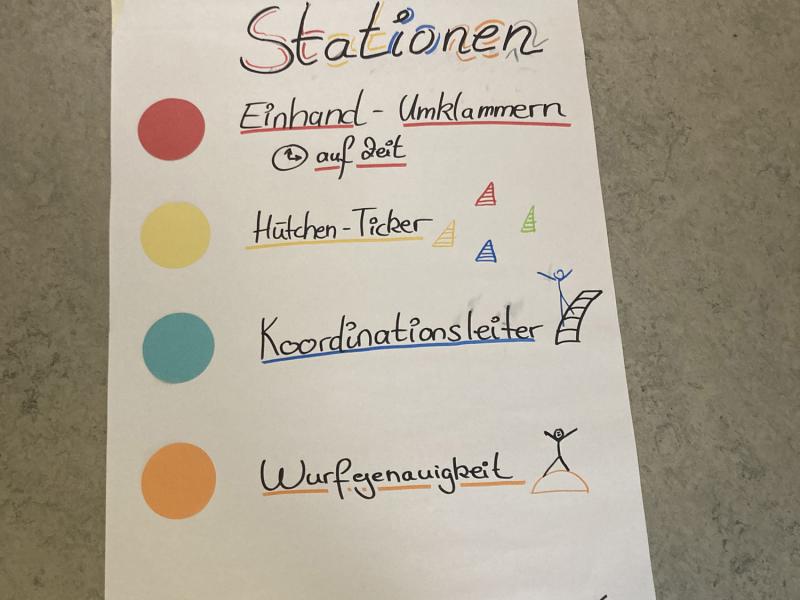 Stationen
Einhand - Umklammern
auf Zeit
Hütchen-Ticker
Koordinationsleiter
Wurfgenauigkeit